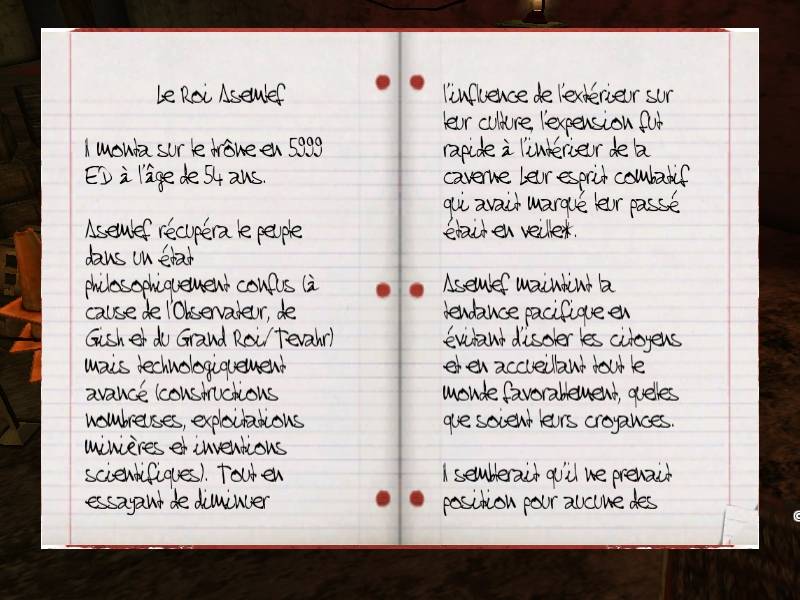 Le Roi Asemlef
Il monta sur le trône en 5999
ED à l'âge de 54 ans.
Asemlef récupéra le peuple
dans un état
philosophiquement confus (à
cause de l'Observateur, de
Gish et du Grand Roi/Tevahr)
mais technologiquement
avancé (constructions
nombreuses, exploitations
minières et inventions
scientifiques). Tout en
essayant de diminuer
l'influence de l'extérieur sur
leur culture, l'expension fut
rapide à l'intérieur de la
caverne. Leur esprit combatif
qui avait marqué leur passé
était en veille*.
Asemlef maintint la
tendance pacifique en
évitant d'isoler les citoyens
et en accueillant tout le
monde favorablement, quelles
que soient leurs croyances.
Il semblerait qu'il ne prenait
position pour aucune des
©